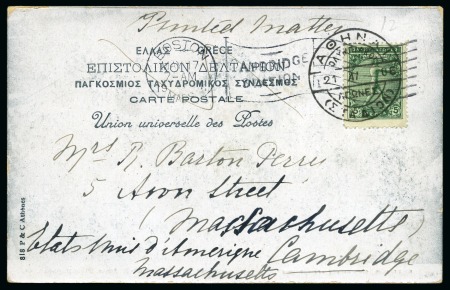 Printed Matter
12
ΕΛΛΑΣ GRECE
ΕΠΙΣΤΟΛΙΚΟΝ ΔΕΛΤΑΡΙΟΝ
ΠΑΓΚΟΣΜΙΟΣ ΤΑΧΥΔΡΟΜΙΚΟΣ ΣΥΝΔΕΣΜΟΣ
CARTE POSTALE
Union universelle des Postes
BOSTON
7-AM
CAMBRIDGE
STATION
ΑΘΗΝΑΙ
21 XI 06
5
Mrs R. Barton Perry
5 Avon Street
Massachusetts
Etats Unis d'Amerique Cambridge
Massachusetts
818 P & C Athènes